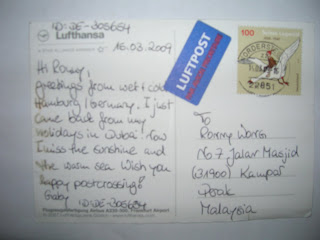 ID: DE-305654
Lufthansa
16.03.2009
Hi Ronny,
greetings from wet + cold
Hamburg / Germany. I just
came back from my
holidays in Dubai! Now
I miss the sunshine and
the warm sea. Wish you
happy postcrossing!
Gaby
ID: DE-305654
LUFTPOST
100
22851
To
Ronny
No 7 Jalan Masjid
(31900) Kampar
Perak
Malaysia